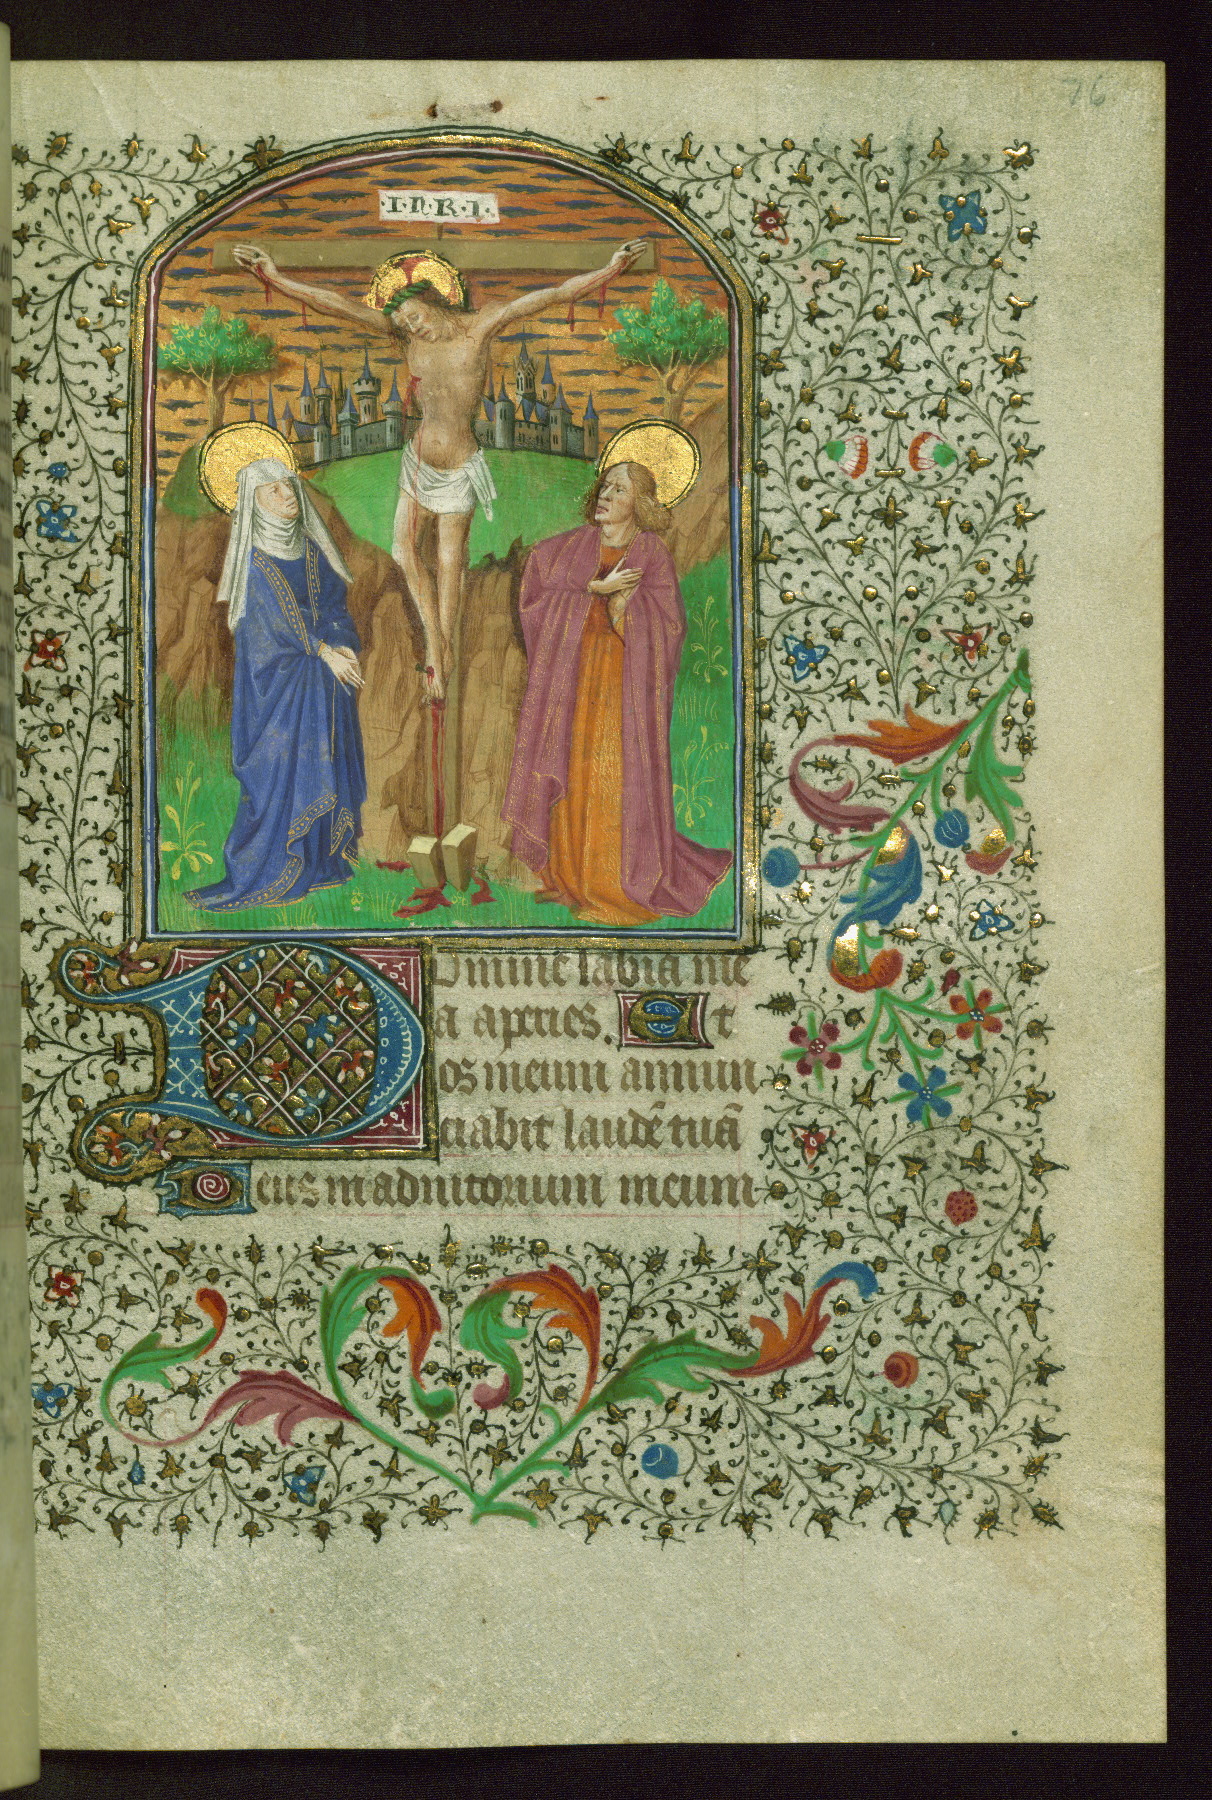 76
·I·N·R·I·
Domine labia me
a aperies. Et
os meum annun
ciabit laudē tuā
Deus in adiutorium meum